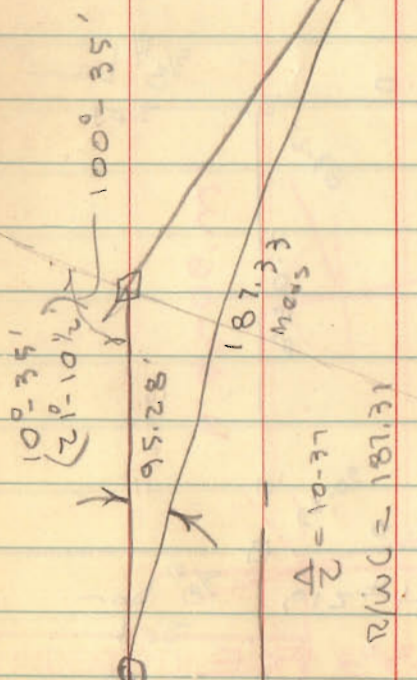 100°-35'
10°-35'
(21°-10½')
95.28'
187.33
Meas
Δ/2 = 10-37
R/W C = 187.31